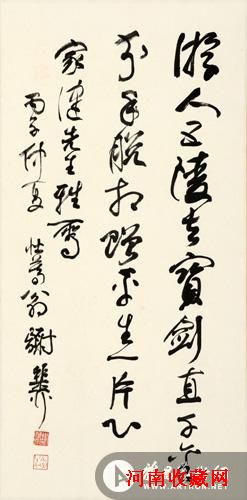 游人五陵去寶劍直千金
分手脱相贈平生一片心
家 先生雅屬
丙子仲夏 壯暮翁謝稚柳
河南收藏网